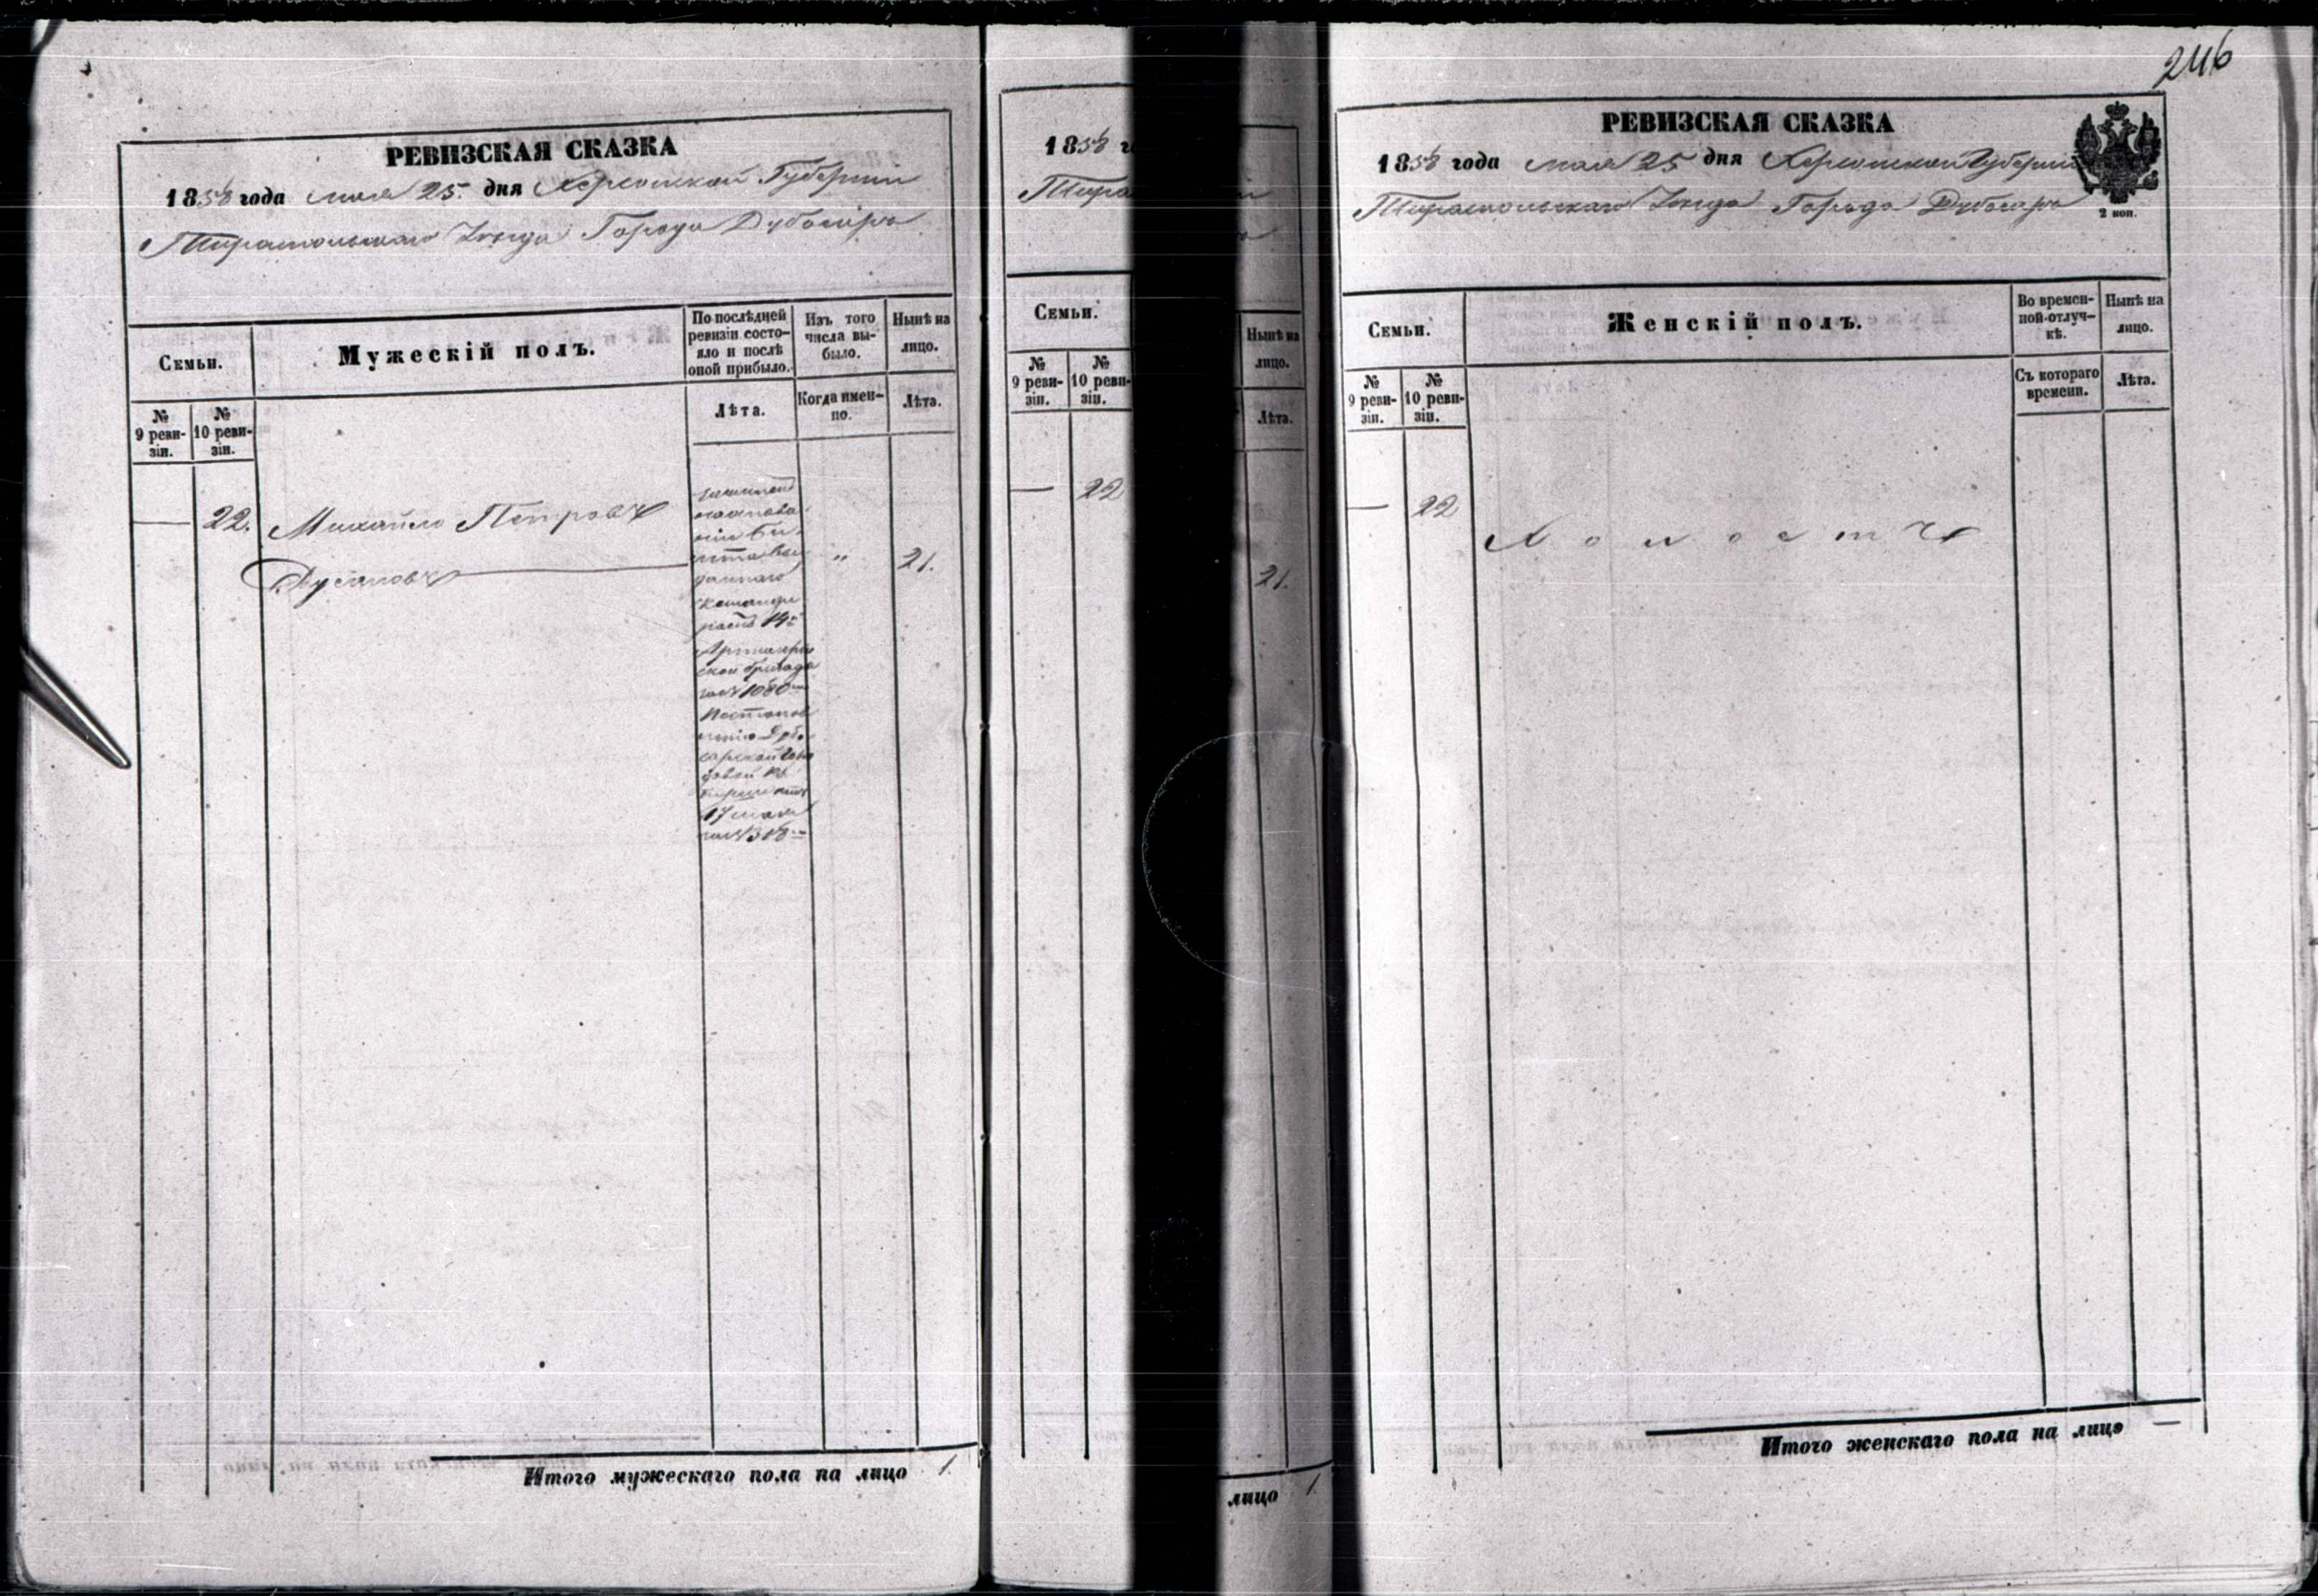 246
РЕВИЗСКАЯ СКАЗКА
1858 года мая 25. дня Херсонской Губернии
Тираспольскаго Уезда Города Дубосаръ
Семьи.
Мужескій полъ.
По послѣдней ревизіи состо-
яло и послѣ
оной прибыло.
Изъ того
числа вы-
было.
Нынѣ на
лицо.
№
9 реви-
зіи.
№
10 реви-
зіи.
Лѣта.
Когда имен-
но.
Лѣта.
— 22. Михайло Петровъ
21.
Артилерій
ской бригады
за № 1080
Постанов
17 мая
за № 318
Итого мужескаго пола на лицо 1.
1858 г
Тирас
Семьи.
№
9 реви-
зіи.
№
10 реви-
зіи.
— 22
Нынѣ на
лицо.
Лѣта.
21.
лицо 1.
РЕВИЗСКАЯ СКАЗКА
1858 года мая 25 дня Херсонской Губерніи
Тираспольскаго Уезда Города Дубосаръ
2 коп.
Семьи.
Женскій полъ.
Во времен-
ной отлуч-
кѣ.
Нынѣ на
лицо.
№
9 реви-
зіи.
№
10 реви-
зіи.
Съ котораго
времени.
Лѣта.
— 22 Холостъ
Итого женскаго пола на лицо —